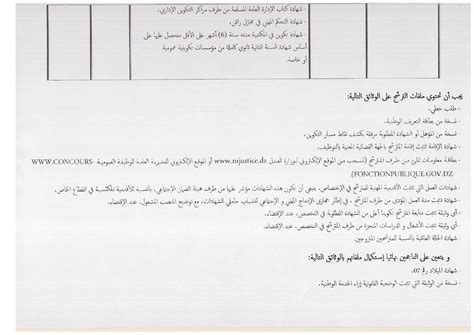 - شهادة كتاب الإدارة العامة المسلمة من طرف مراكز التكوين الإداري،
- شهادة التحكم المهني في مختزل راقن،
- شهادة تكوين في المكتبية مدته ستة (6) أشهر على الأقل متحصل عليها على
أساس شهادة السنة الثانية ثانوي كاملة من مؤسسات تكوينية عمومية
أو خاصة.
يجب أن تحتوي ملفات الترشح على الوثائق التالية:
- طلب خطي.
- نسخة من بطاقة التعريف الوطنية.
- نسخة من المؤهل أو الشهادة المطلوبة مرفقة بكشف نقاط مسار التكوين.
- نسخة من وثيقة تثبت إقامة المترشح بالجهة القضائية المعنية بالتوظيف.
-بطاقة معلومات تملئ من طرف المترشح (تسحب من الموقع الإلكتروني لوزارة العدل www.mjustice.dz أو الموقع الإلكتروني للمديرية العامة للوظيفة العمومية WWW.CONCOURS-
FONCTIONPUBLIQUE.GOV.DZ).
- شهادات العمل التي تثبت الأقدمية المهنية للمترشح في الإختصاص، ينبغي أن تكون هذه الشهادات مؤشر عليها من طرف هيئة الضمان الإجتماعي، بالنسبة للأقدمية المكتسبة في القطاع الخاص.
- شهادة تثبت مدة العمل المؤدى من طرف المترشح في إطار جهازي الإدماج المهني و الإجتماعي للشباب حاملي الشهادات، مع توضيح المنصب المشغول، عند الإقتضاء.
- أي وثيقة تثبت متابعة المترشح تكوينا أعلى من الشهادة المطلوبة في التخصص، عند الإقتضاء.
- أي وثيقة تثبت الأشغال و الدراسات المنجزة من طرف المترشح في التخصص، عند الإقتضاء.
- شهادة الحالة العائلية بالنسبة للمترشحين المتزوجين.
و يتعين على الناجحين نهائيا إستكمال ملفاتهم بالوثائق التالية:
- شهادة الميلاد رقم 07،
- نسخة من الوثيقة التي تثبت الوضعية القانونية إزاء الخدمة الوطنية،